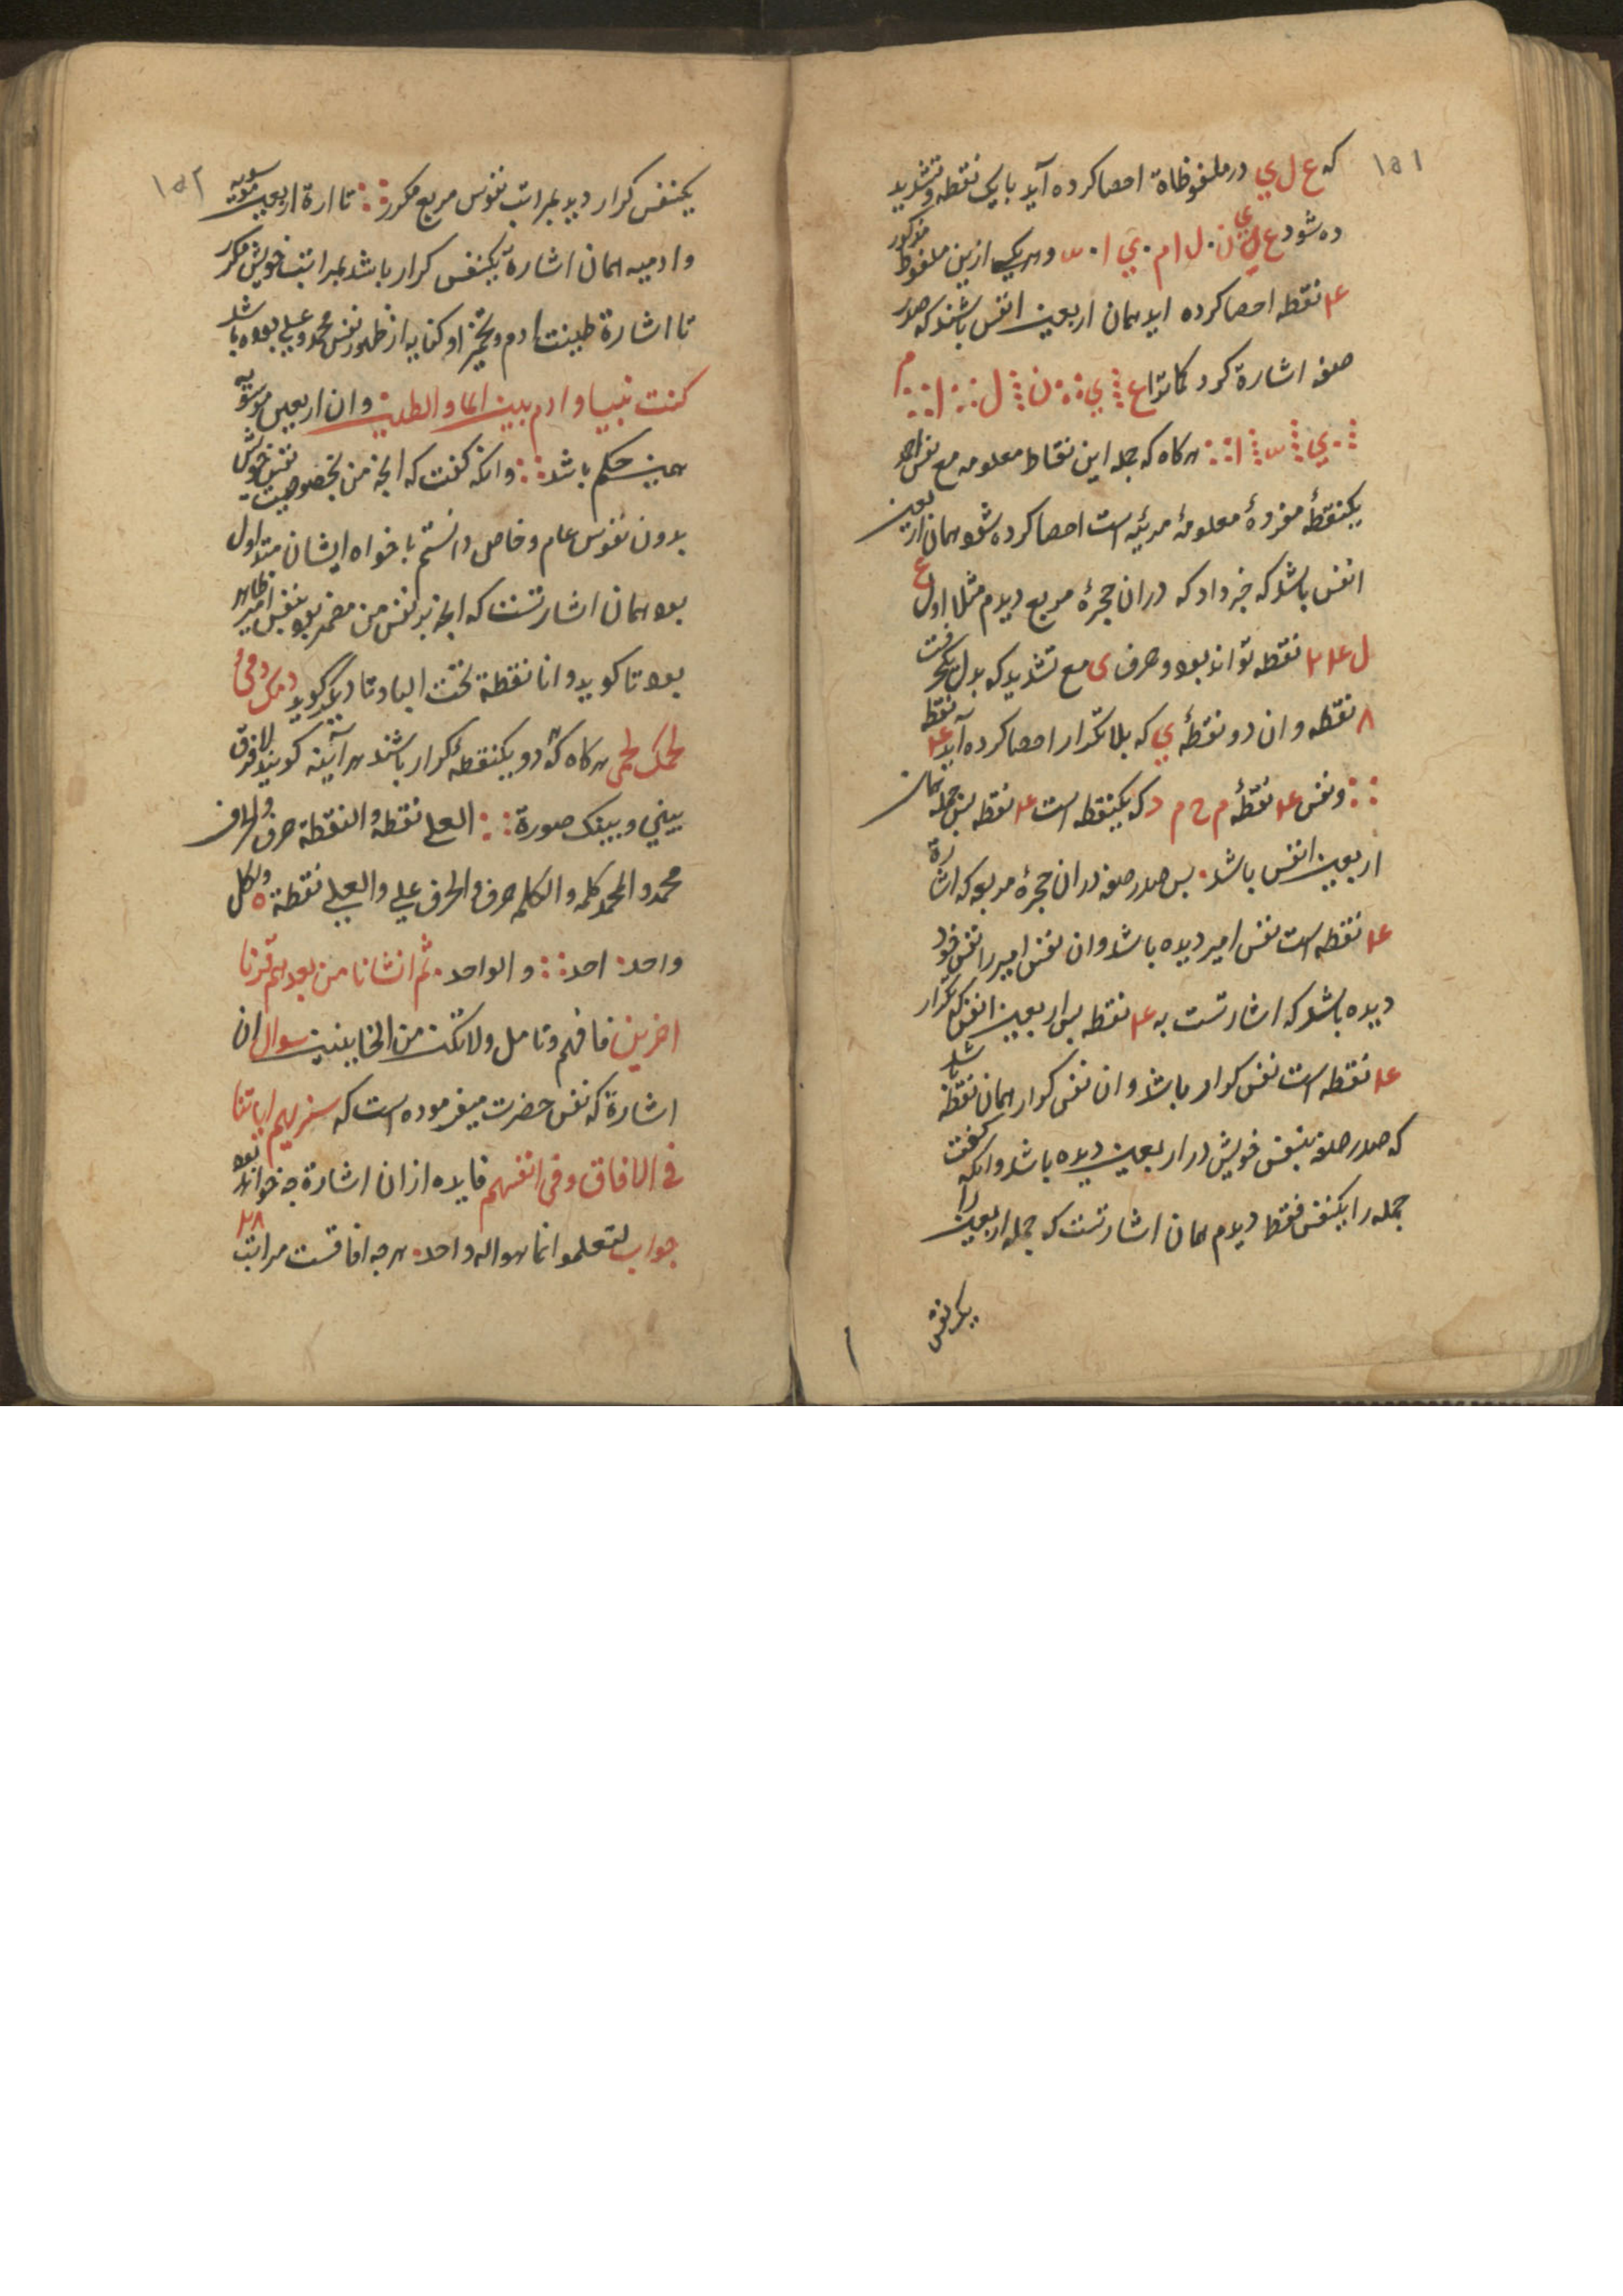 ١٥١
که ع ل ي در ملفوظاة احصا کرده آید با یک نقطه و تشدید
ده شود ع ي ن . ل ام . ي ا . و هر یک ازین ملفوظ مذکور
۴ نقطه احصا کرده اید همان اربعین انفس باشند که صدر
صفه اشارة کرد کماترا ع ي ن ل ا م
ي ا هر کاه که جمله این نقاط معلومه مع نفس
یکنقطهٔ مفردهٔ معلومهٔ مرئیه است احصا کرده شود همان اربعین
انفس باشد که خبر داد که در ان حجرهٔ مربع دیدم مثلا اول ع
ل نقطه تواند بود و حرف ی مع تشدید که بدل
۸ نقطه و ان دو نقطهٔ ي که بلا تکرار احصا کرده آید ۴ نقطه
و نفس ۴ نقطهٔ م ح م د که یکنقطه است ۴ نقطه پس جمله همان
اربعین انفس باشد . پس صدر صفه در ان حجرهٔ مربع که اشارة
۴ نقطه است نفس امیر دیده باشد و ان نفس امیر را نفس خود
دیده باشد که اشارتست به ۴ نقطه پس اربعین انفس که تکرار
۴ نقطه است نفس کرار باشد و ان نفس کرار همان نقطه باشد
که صدر صفه بنفس خویش در اربعین دیده باشد و انکه کفت
جمله را یکنفس فقط دیدم همان اشارتست که جمله اربعین را
یکنفس
١٥٢
یکنفس کرار دید بمراتب نفوس مربع مکرر تا ارة اربعین موسویه
و ادمیه همان اشارة یکنفس کرار باشد بمراتب خویش مکرر
تا اشارة طینت ادم و تخمیر او کنایه از ظهور نفس محمد و علي بوده باشد
کنت نبیا و ادم بین الما و الطین و ان اربعین موسویه
همین حکم باشد و انکه کفت که انچه من بخصوصیت نفس خویش
بدون نفوس عام و خاص دانستم با خواه ایشان متداول
بود همان اشارتست که انچه نفس من مضمر بود بنفس امیر ظاهر
بود تا کوید و انا نقطة تحت البا و تا دیگر کوید دمک دمي
لحمک لحمي هر کاه که دو یکنقطهٔ کرار باشند هر آینه کویند لا فرق
بیني و بینک صورة العلي نقطه و النقطة حرف و الحرف
محمد و المحمد کلمه و الکلمه حرف و الحرف علي و العلي نقطة و الکل
واحد احد و الواحد . ثم انشانا من بعدهم قرنا
اخرین فافهم و تامل و لا تکن من الخایبین سوال ان
اشارة که نفس حضرت میفرموده است که سنریهم ایاتنا
في الافاق و في انفسهم فایده از ان اشارة چه خواهد بود
جواب لتعلموا انما هو اله واحد . هر چه افاقست مراتب ٢٨